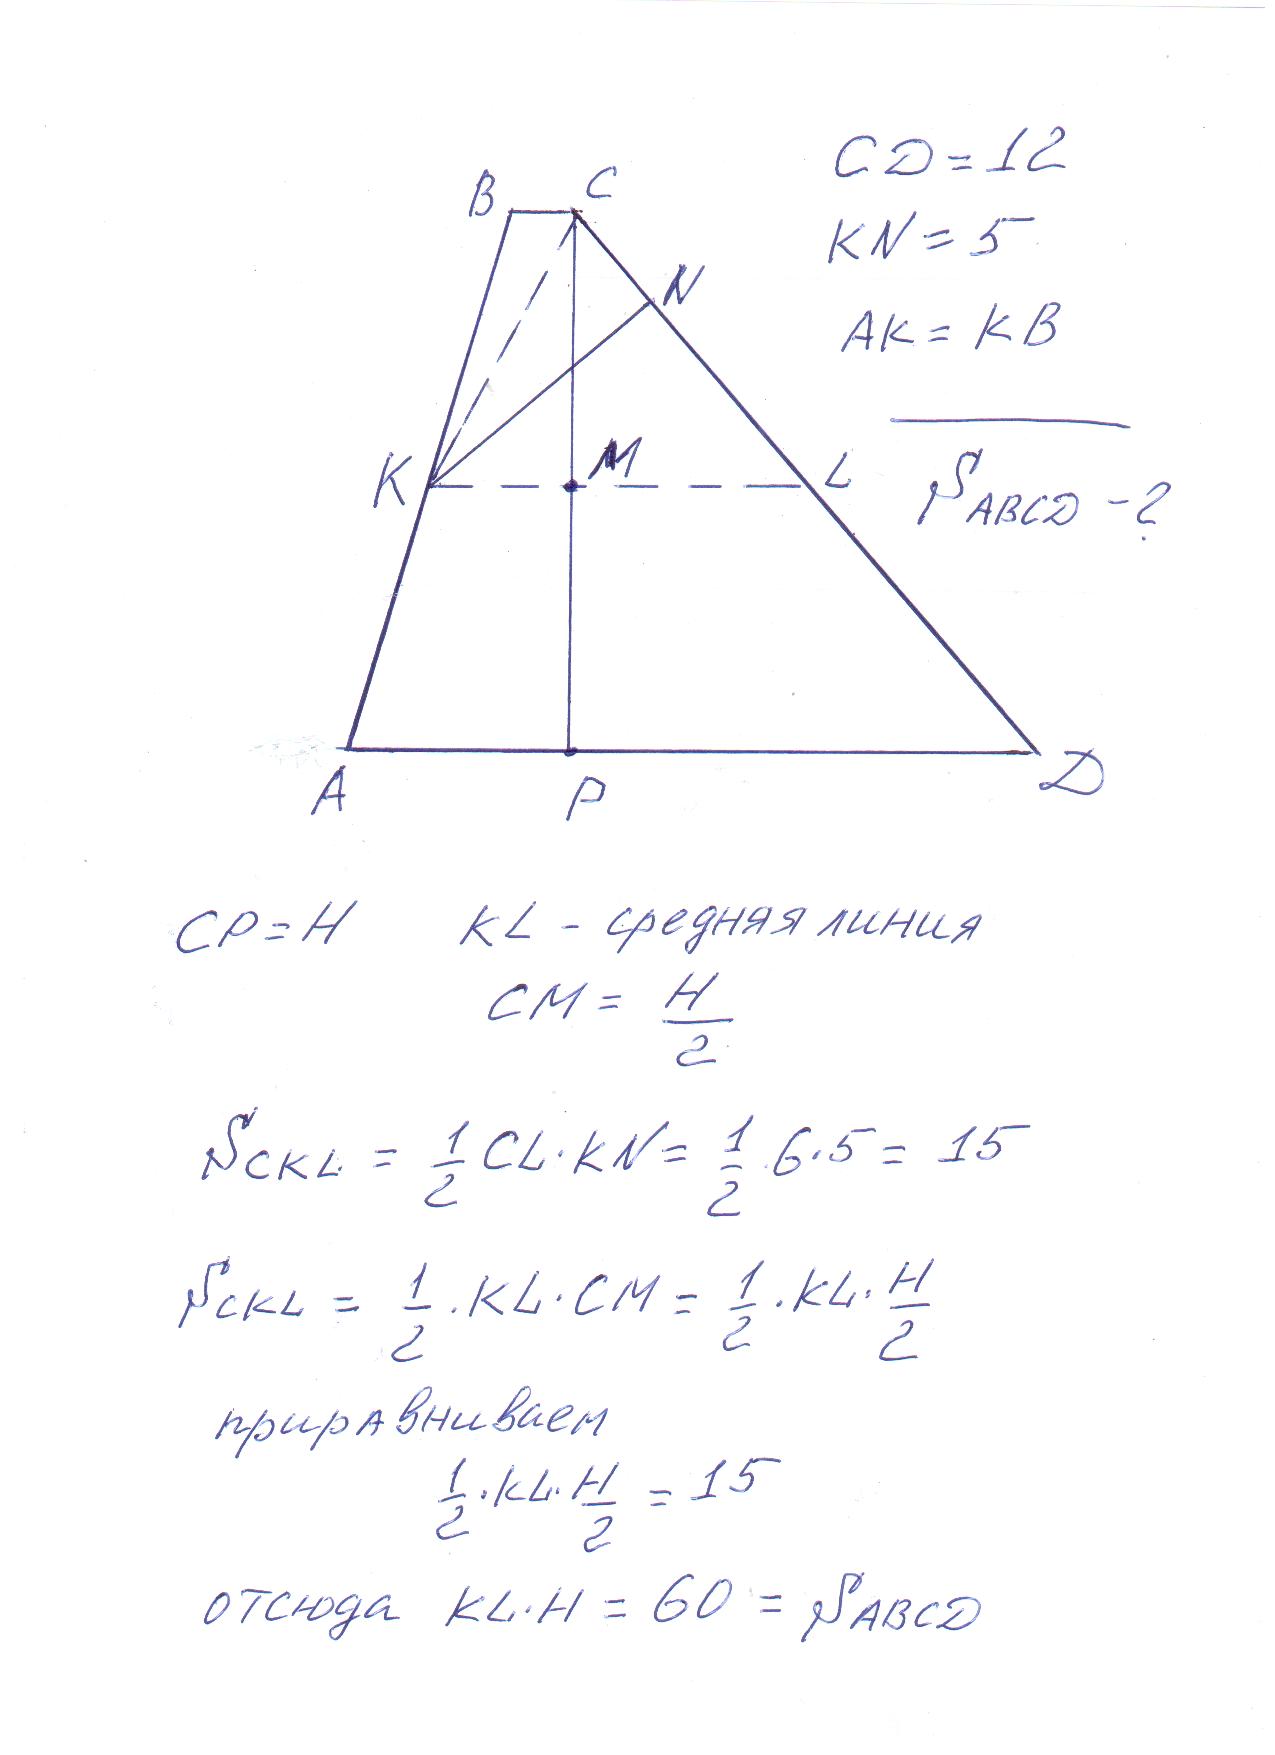 B C
CD = 12
N
KN = 5
AK = KB
K M L
S ABCD - ?
A P D
CP = H KL - средняя линия
CM = H/2
S CKL = 1/2 CL · KN = 1/2 · 6 · 5 = 15
S CKL = 1/2 · KL · CM = 1/2 · KL · H/2
приравниваем
1/2 · KL · H/2 = 15
отсюда KL · H = 60 = S ABCD